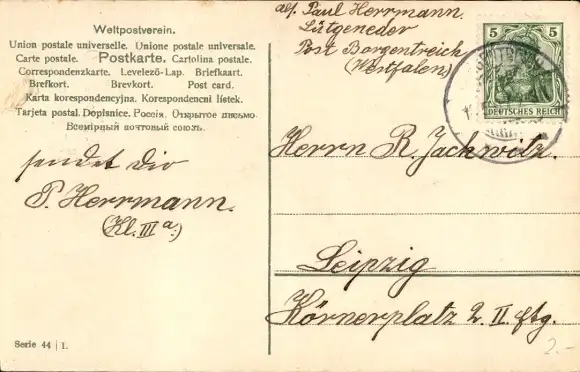 Weltpostverein.
Union postale universelle. Unione postale universale.
Carte postale. Postkarte. Cartolina postale.
Correspondenzkarte. Levelező-Lap. Briefkaart.
Brefkort. Brevkort. Post card.
Karta korespondencyjna. Korespondenční lístek.
Tarjeta postal. Dopisnice. Россія. Открытое письмо
Всемірный почтовый союзъ.
sendet Dir
P. Herrmann.
(Kl. III a.)
Serie 44 | 1.
abs. Paul Herrmann.
Lütgeneder
Post Borgentreich
(Westfalen)
5 5
DEUTSCHES REICH
Herrn R. Jachwitz.
Leipzig
Körnerplatz 2. II. Etg.
2.-